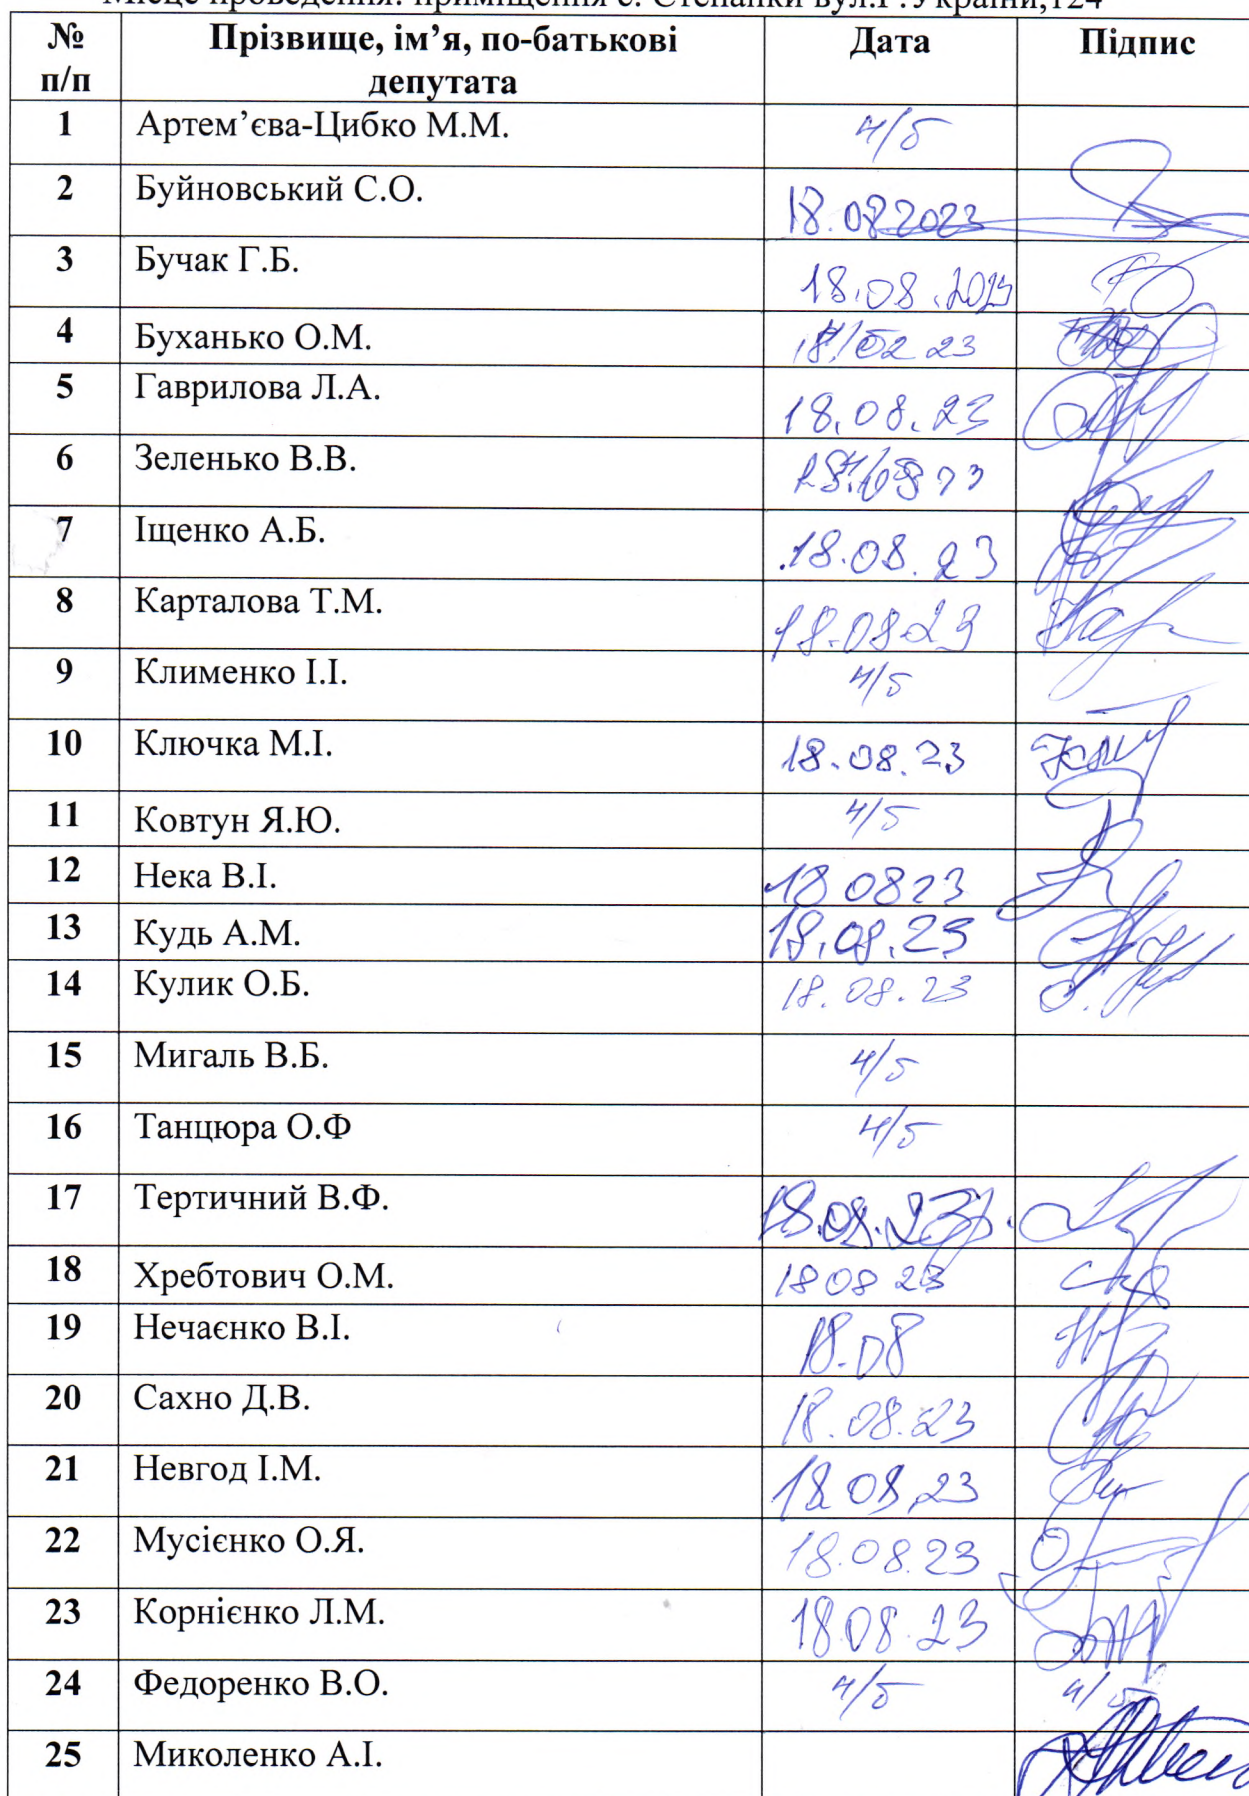 Місце проведення: приміщення с. Степанки вул.Г.України,124
№ п/п Прізвище, ім’я, по-батькові депутата Дата Підпис
1 Артем’єва-Цибко М.М. н/б
2 Буйновський С.О. 18.08 2023
3 Бучак Г.Б. 18.08.2023
4 Буханько О.М. 23
5 Гаврилова Л.А. 18.08.23
6 Зеленько В.В.
7 Іщенко А.Б. 18.08.23
8 Карталова Т.М. 18.08 23
9 Клименко І.І. н/б
10 Ключка М.І. 18.08.23
11 Ковтун Я.Ю. н/б
12 Нека В.І. 18 08 23
13 Кудь А.М. 18.08.23
14 Кулик О.Б. 18.08.23
15 Мигаль В.Б. н/б
16 Танцюра О.Ф н/б
17 Тертичний В.Ф. 18.08.23
18 Хребтович О.М. 18 08 23
19 Нечаєнко В.І. 18.08
20 Сахно Д.В. 18.08.23
21 Невгод І.М. 18 08.23
22 Мусієнко О.Я. 18.08.23
23 Корнієнко Л.М. 18.08.23
24 Федоренко В.О. н/б н/б
25 Миколенко А.І.